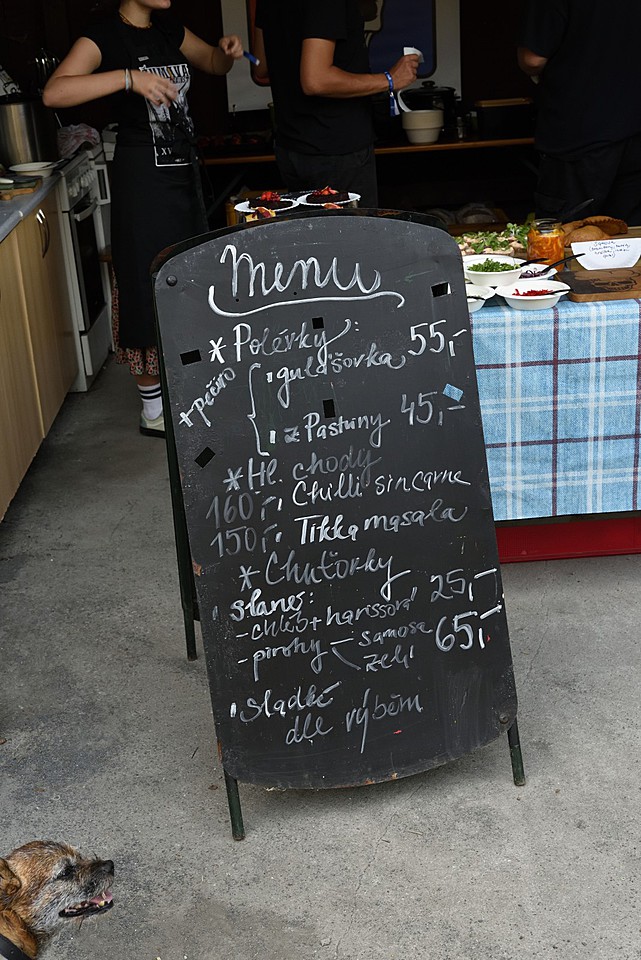 Menu
* Polévky
gulášovka 55,-
+ pečivo
z Pastviny 45,-
* Hl. chody
160,- Chilli sin carne
150,- Tikka masala
* Chuťovky
slané:
- chléb + harissová 25,-
- pirohy samosa 65,-
zelí
sladké
dle výběru